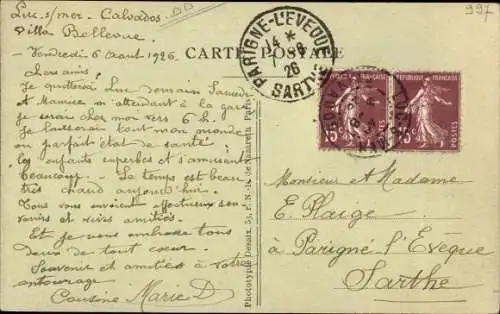 Luc s/mer - Calvados
Villa Bellevue
- Vendredi 6 août 1926 -
chers amis,
Je quitterai Luc demain Samedi
et Maurice m'attendant à la gare
je serai chez moi vers 6 h.
Je laisserai tout mon monde
en parfait état de santé.
Les enfants superbes et s'amusent
beaucoup. - Le temps est beau
très chaud aujourd'hui.
Tous vous envoient affectueux sou-
venirs et vives amitiés.
Et je vous embrasse tous
deux de tout coeur.
Souvenir et amitiés à votre
entourage
Cousine Marie D
997
CARTE POSTALE
PARIGNE-L'EVEQUE
14 * 7-8
26
SARTHE
REPUBLIQUE FRANÇAISE
15c POSTES
REPUBLIQUE FRANÇAISE
15c POSTES
Phototypie Desaix, 53, r. N.-D. de Nazareth Paris
Monsieur et Madame
E. Plaige
à Parigné l'Evêque
Sarthe